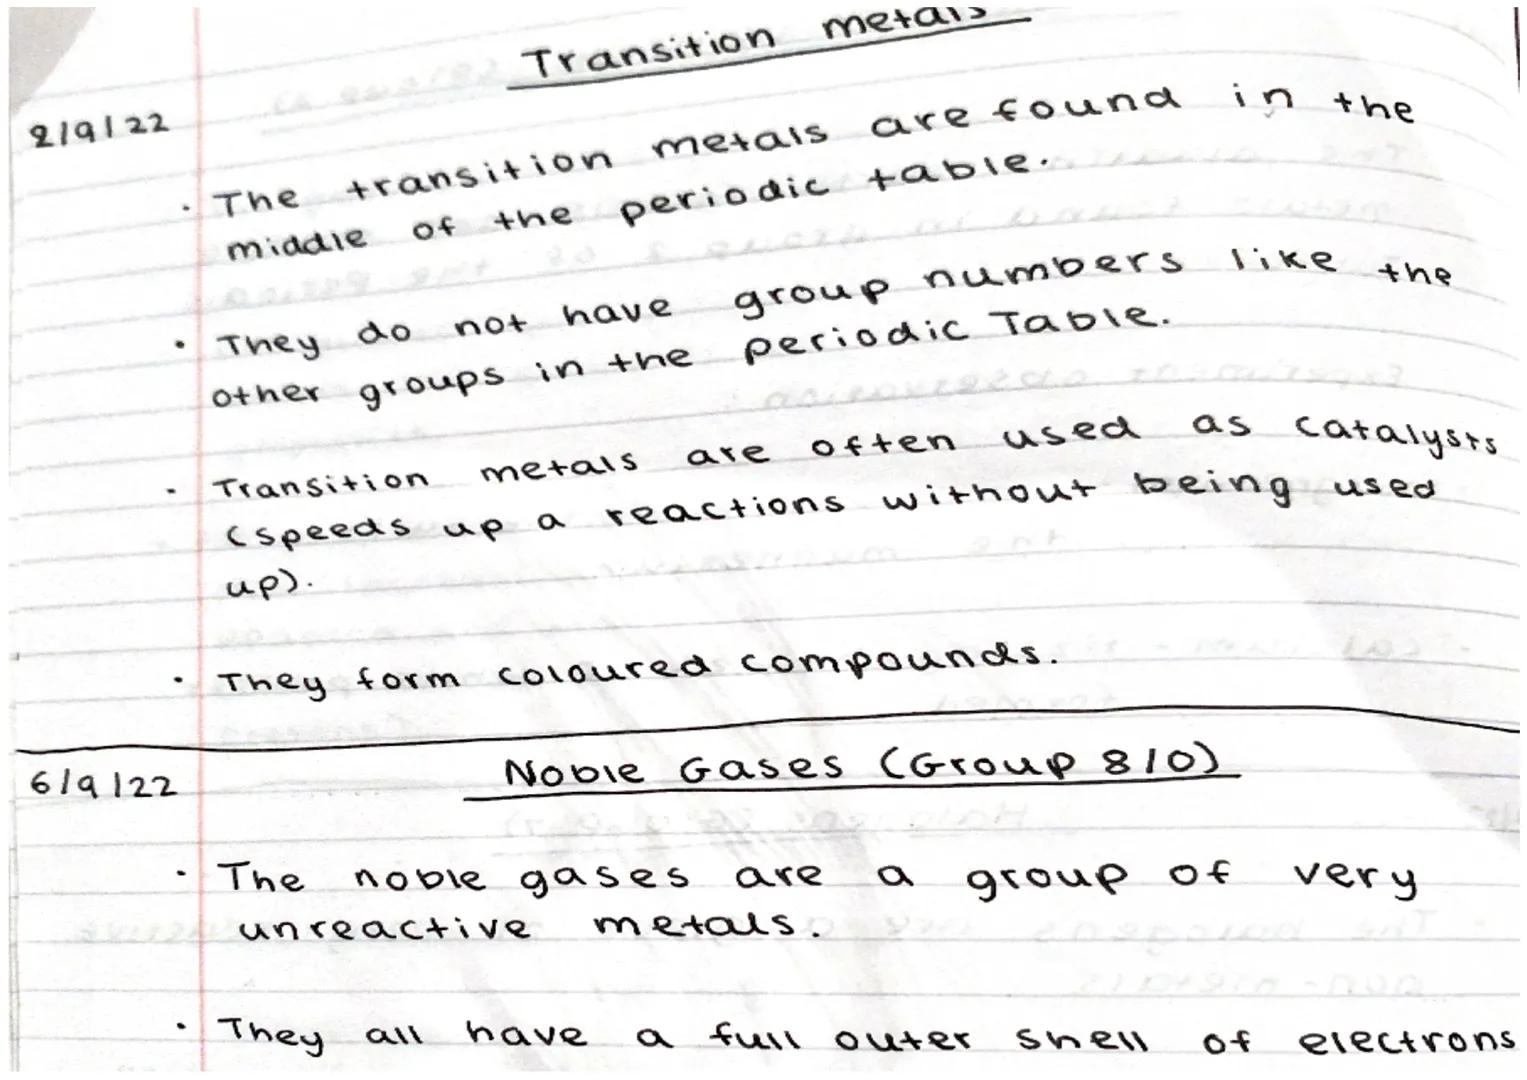 Transition metals
2/9/22
· The transition metals are found in the
middle of the periodic table.
· They do not have group numbers like the
other groups in the periodic Table.
· Transition metals are often used as catalysts
(speeds up a reactions without being used
up).
· They form coloured compounds.
6/9/22
Noble Gases (Group 8/0)
· The noble gases are a group of very
unreactive metals.
· They all have a full outer shell of electrons